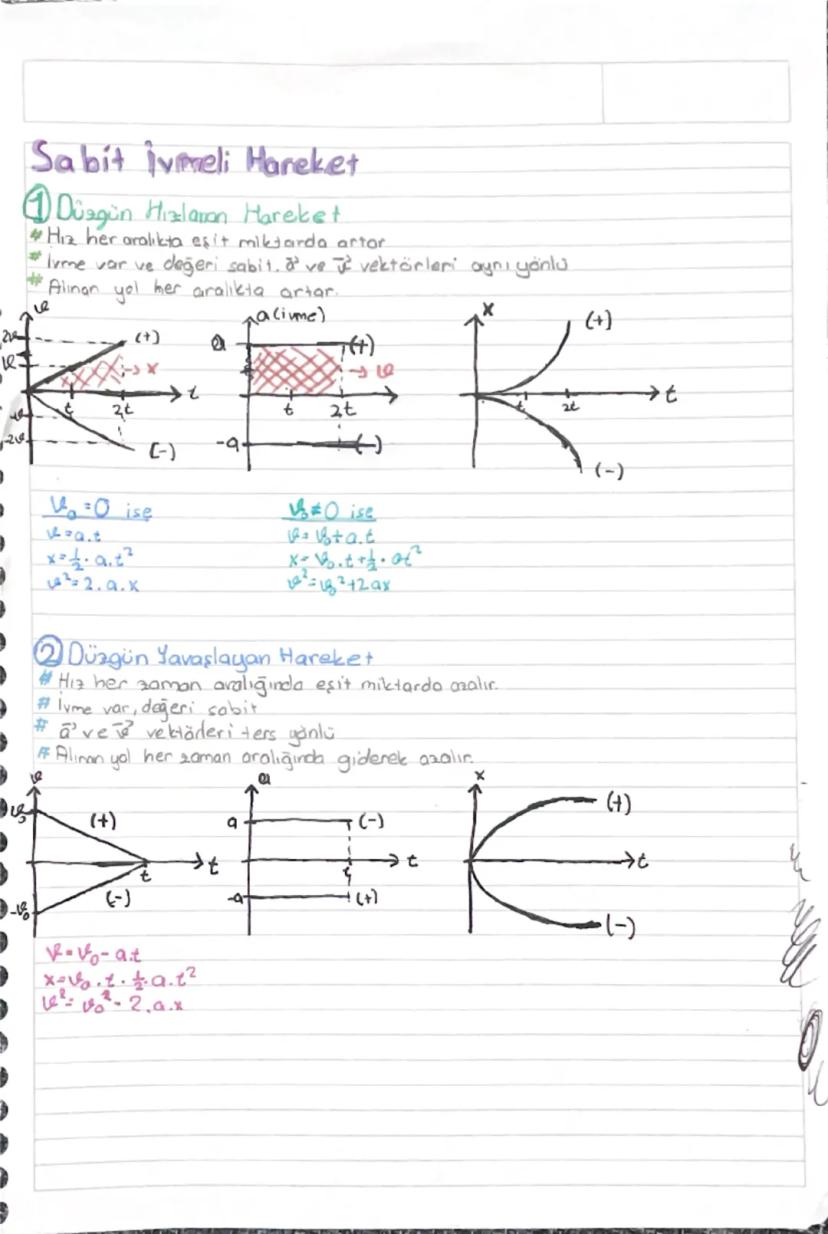 Sabit İvmeli Hareket
1 Düzgün Hızlanan Hareket
# Hız her aralıkta eşit miktarda artar
# İvme var ve değeri sabit. a⃗ ve v⃗ vektörleri aynı yönlü
# Alınan yol her aralıkta artar.
v a(ivme) x
2v (+) a (+) (+)
v → x → v
t 2t t t 2t t 2t t
-v
-2v (-) -a (-) (-)
v₀ = 0 ise v₀ ≠ 0 ise
v = a.t v = v₀ + a.t
x = ½ . a.t² x = v₀.t + ½ . at²
v² = 2.a.x v² = v₀² + 2ax
2 Düzgün Yavaşlayan Hareket
# Hız her zaman aralığında eşit miktarda azalır.
# İvme var, değeri sabit
# a⃗ ve v⃗ vektörleri ters yönlü
# Alınan yol her zaman aralığında giderek azalır.
v a x
v₀ (+) a (-) (+)
t t t t t
-v₀ (-) -a (+) (-)
v = v₀ - a.t
x = v₀ . t . ½ . a.t²
v² = v₀² - 2.a.x